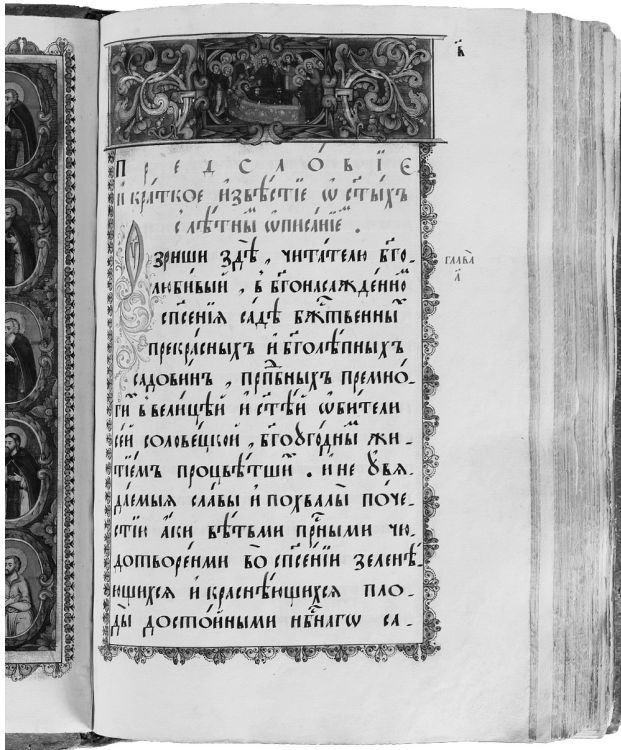 в҃
Предсло́вїе
и҆ кра́ткое и҆звѣ́стїе ѡ҆ ст҃ы́хъ
с лѣ́тны́м ѡ҆писа́нїем .
Оу҆зриши здѣ̀ , чита́телю бг҃о_
люби́вый , в бг҃онасажде́нном
сп҃се́нїѧ са́дѣ бж҃твенных
прекра́сныхъ и҆ бг҃олѣ́пныхъ
садовинъ , прпбⷣныхъ премно́_
гих в вели́цѣй и҆ ст҃ѣ́й ѡ҆би́тели
се́й солове́цкой , бг҃оꙋго́дным жи_
тїе́мъ процвѣ́тших . и҆ не ꙋ҆вѧ_
да́емыѧ сла́вы и҆ похвалы̀ по́че_
стїю а҆́ки вѣ́тьми пⷣрными чю_
дотворе́ньми во сп҃се́нїи зеленѣ́_
ющихсѧ и҆ краснѣ́ющихсѧ пло_
ды̀ досто́йными нбⷭ҇нагѡ са_
глава̀
а҃